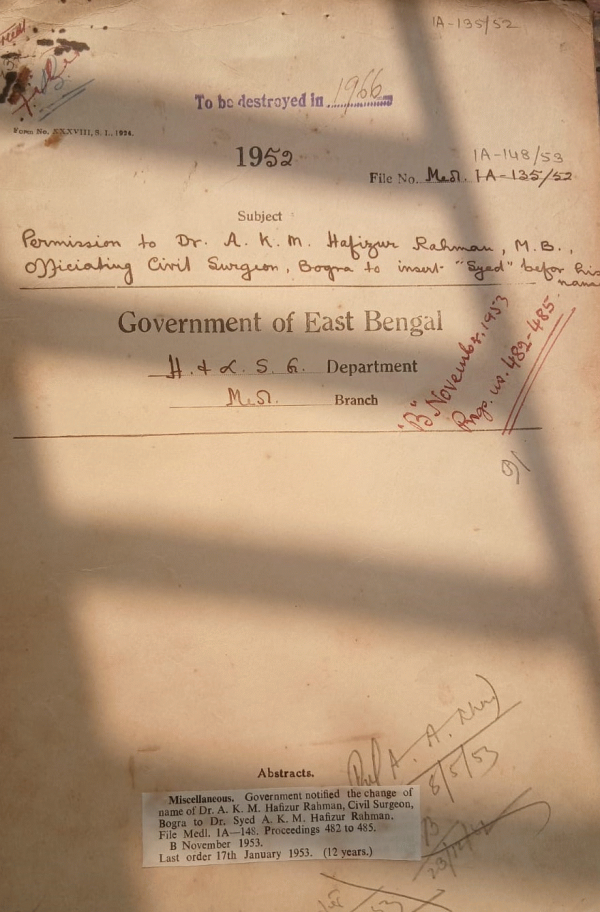 IA-135/52
To be destroyed in 1966
Form No. XXXVIII, S. I., 1934.
1952
IA-148/53
File No. Medl. IA-135/52
Subject
Permission to Dr. A. K. M. Hafizur Rahman, M.B.,
Officiating Civil Surgeon, Bogra to insert "Syed" befor his
name
Government of East Bengal
H. & L. S. G. Department
Medl. Branch
"B" November, 1953
Progs. no. 482-485.
Abstracts.
Miscellaneous. Government notified the change of
name of Dr. A. K. M. Hafizur Rahman, Civil Surgeon,
Bogra to Dr. Syed A. K. M. Hafizur Rahman.
File Medl. 1A—148. Proceedings 482 to 485.
B November 1953.
Last order 17th January 1953. (12 years.)
8/5/53